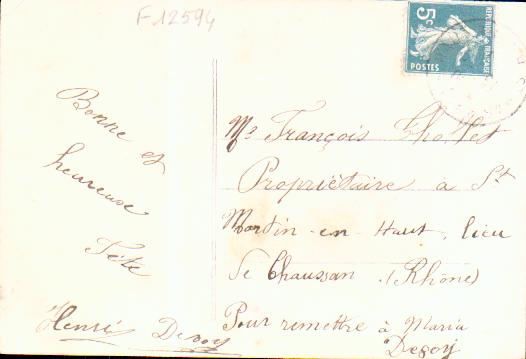 F12594
5c
REPUBLIQUE FRANÇAISE
POSTES
Bonne et
heureuse
Fête
Henri Devoy
Mr François Thollet
Propriétaire à St
Martin-en-Haut, lieu
de Chaussan (Rhône)
Pour remettre à Maria
Devoy